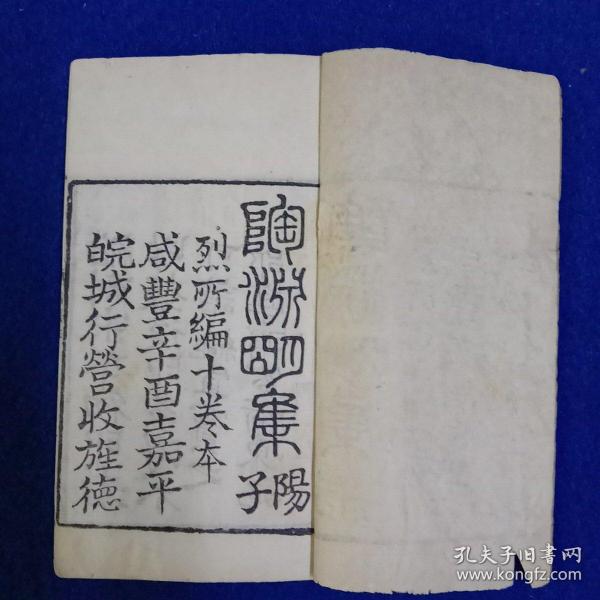 陶淵明集
陽子
烈所編十卷本
咸豐辛酉嘉平
皖城行營收旌德
孔夫子旧书网
www.kongfz.com